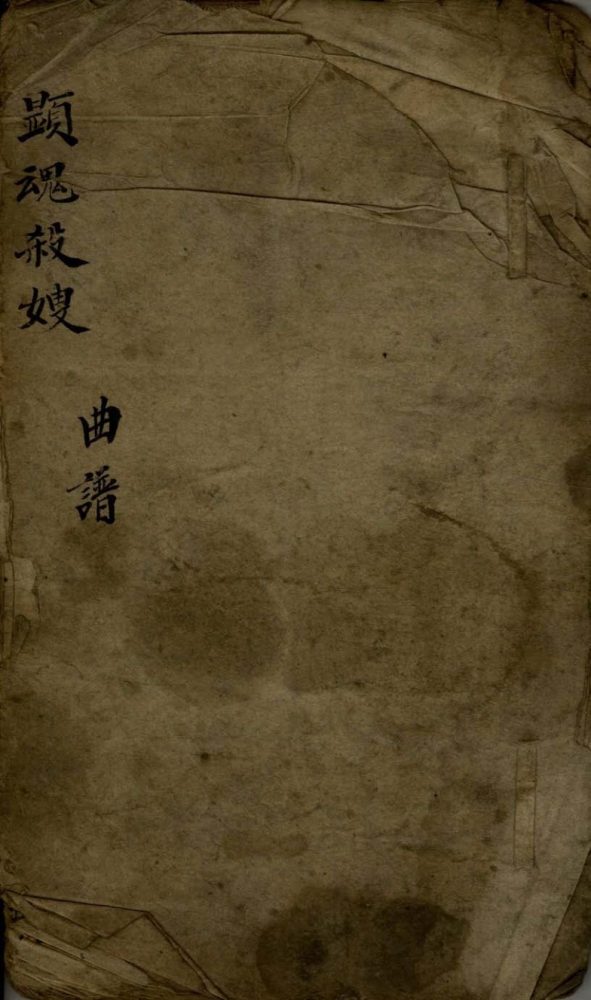 顕魂殺嫂
曲譜